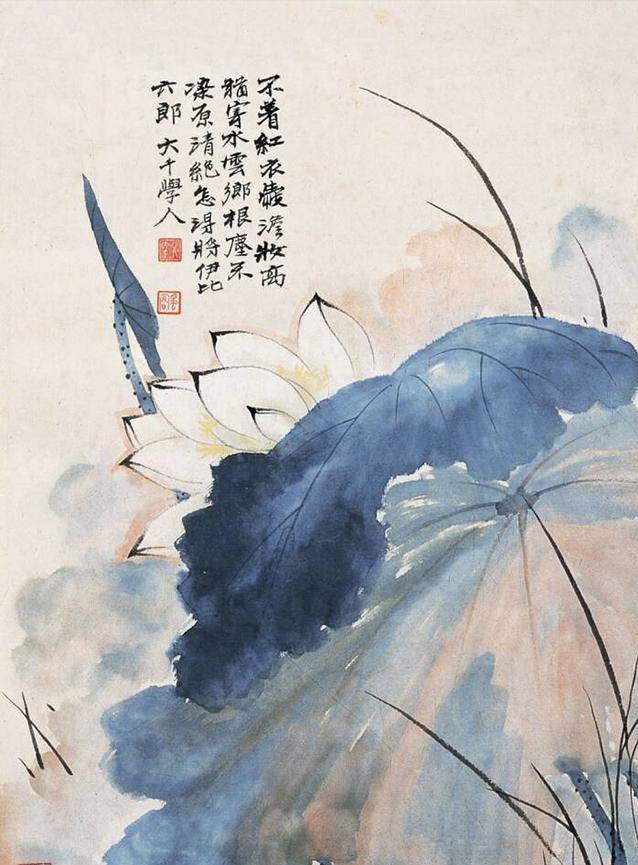 不着紅衣澹妝高
猶寄水雲鄉根塵不
染原清絕怎得將伊比
六郎 大千學人